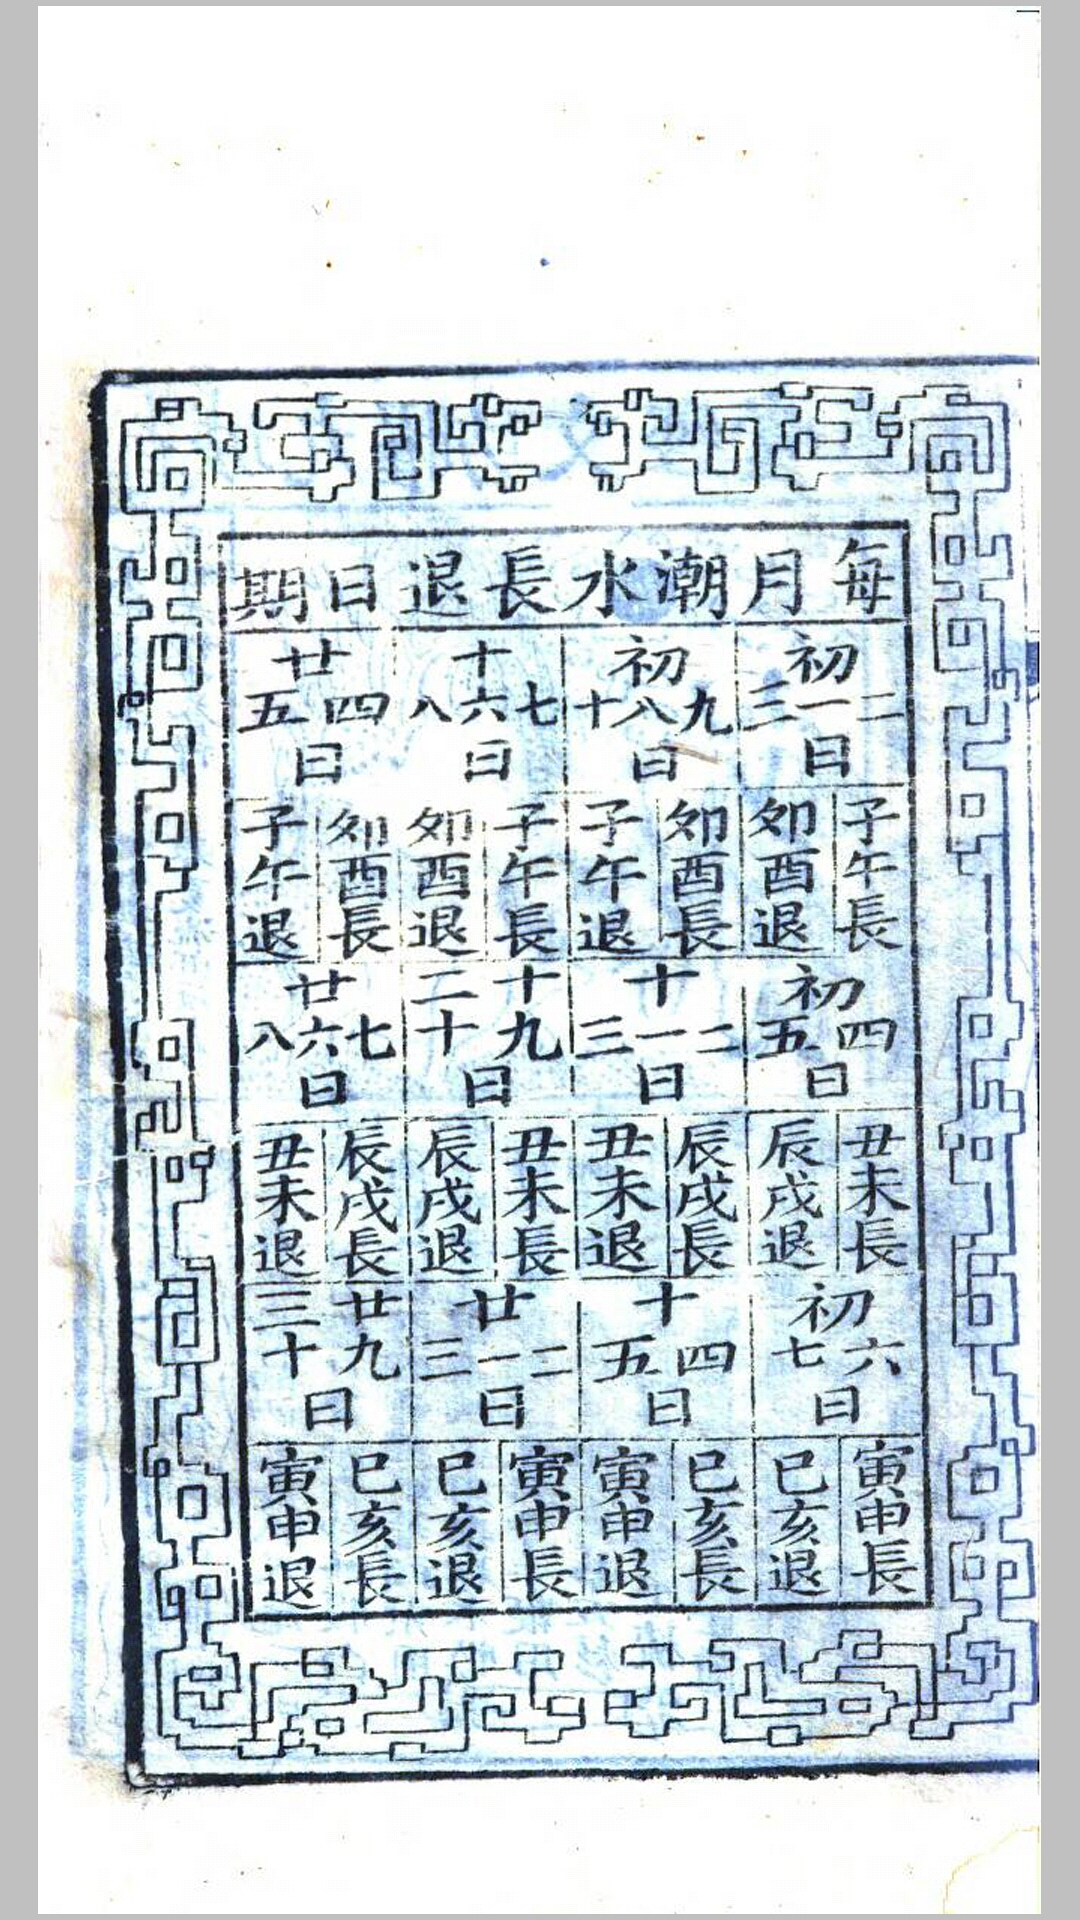 每月潮水長退日期
初一二三日
子午長
夘酉退
初四五日
丑未長
辰戌退
初六七日
寅申長
巳亥退
初八九十日
夘酉長
子午退
十一二三日
辰戌長
丑未退
十四五日
巳亥長
寅申退
十六七八日
子午長
夘酉退
十九二十日
丑未長
辰戌退
廿一二三日
寅申長
巳亥退
廿四五日
夘酉長
子午退
廿六七八日
辰戌長
丑未退
廿九三十日
巳亥長
寅申退